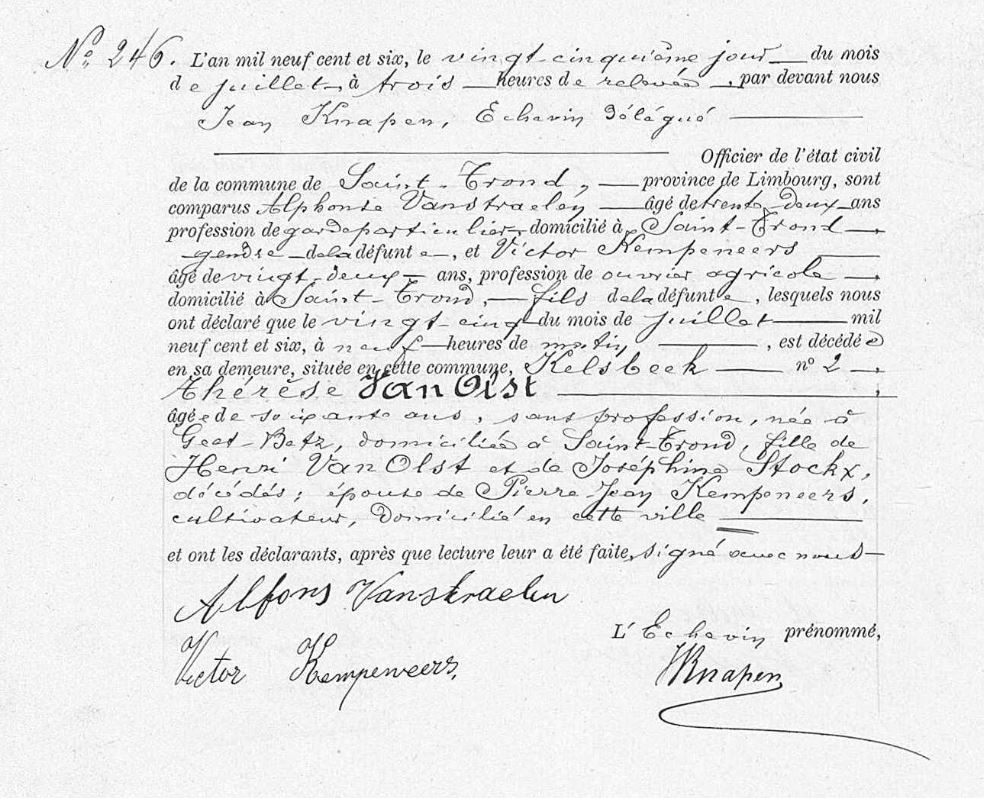 N° 246. L'an mil neuf cent et six, le vingt-cinquième jour du mois
de juillet, à trois heures de relevée, par devant nous
Jean Knapen, Echevin délégué
Officier de l'état civil
de la commune de Saint-Trond, province de Limbourg, sont
comparus Alphonse Vanstraelen âgé de trente-deux ans
profession de garde particulier, domicilié à Saint-Trond,
gendre de la défunte, et Victor Kempeneers
âgé de vingt-deux ans, profession de ouvrier agricole,
domicilié à Saint-Trond, fils de la défunte, lesquels nous
ont déclaré que le vingt-cinq du mois de juillet mil
neuf cent et six, à neuf heures de matin, est décédée
en sa demeure, située en cette commune, Kelsbeek n° 2,
Thérèse Van Olst,
âgée de soixante ans, sans profession, née à
Geet-Betz, domiciliée à Saint-Trond, fille de
Henri Van Olst et de Joséphine Stockx,
décédés; épouse de Pierre Jean Kempeneers,
cultivateur, domicilié en cette ville
et ont les déclarants, après que lecture leur a été faite, signé avec nous
Alfons Vanstraelen
L'Echevin prénommé,
Victor Kempeneers.
JKnapen